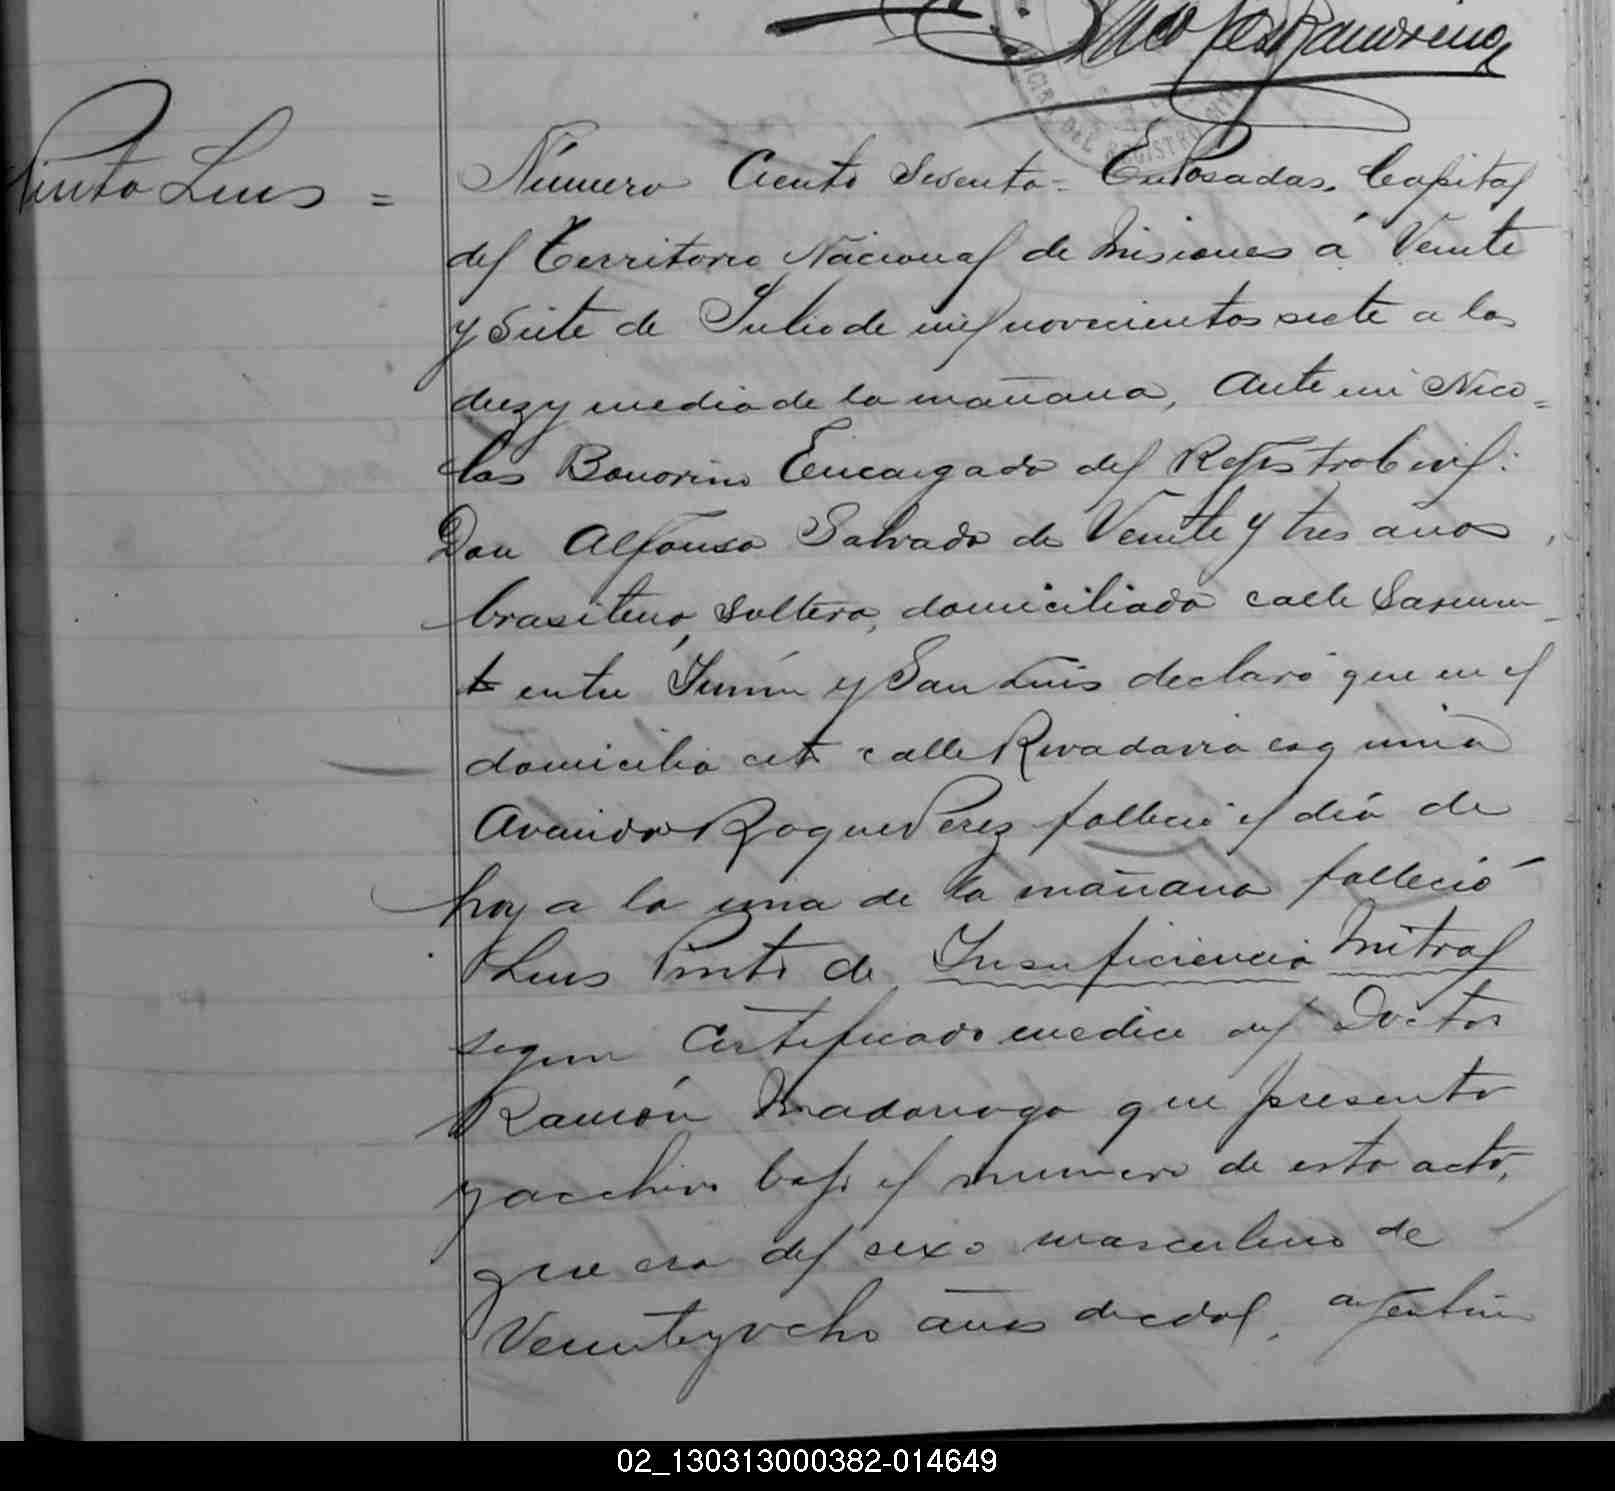 Nicolas Bonorino
OFICINA DEL REGISTRO CIVIL
Pinto Luis =
Número Ciento Sesenta = En Posadas, Capital
del Territorio Nacional de Misiones á Veinte
y Siete de Julio de mil novecientos siete a las
diez y media de la mañana, Ante mi Nico=
las Bonorino Encargado del Registro Civil:
Don Alfonso Salvado de Veinte y tres años,
brasileño, Soltero, domiciliado calle Sarmien-
to entre Junín y San Luis declaró que en el
domicilio cit calle Rivadavia esquina
Avenida Roque Perez falleció el día de
hoy a la una de la mañana falleció
Luis Pinto de Insuficiencia Mitral
segun Certificado medico del Doctor
Ramón Madariaga que presento
y archivo bajo el numero de esta acta,
que era del sexo masculino de
Veinte y ocho años de edad, argentino
02_130313000382-014649